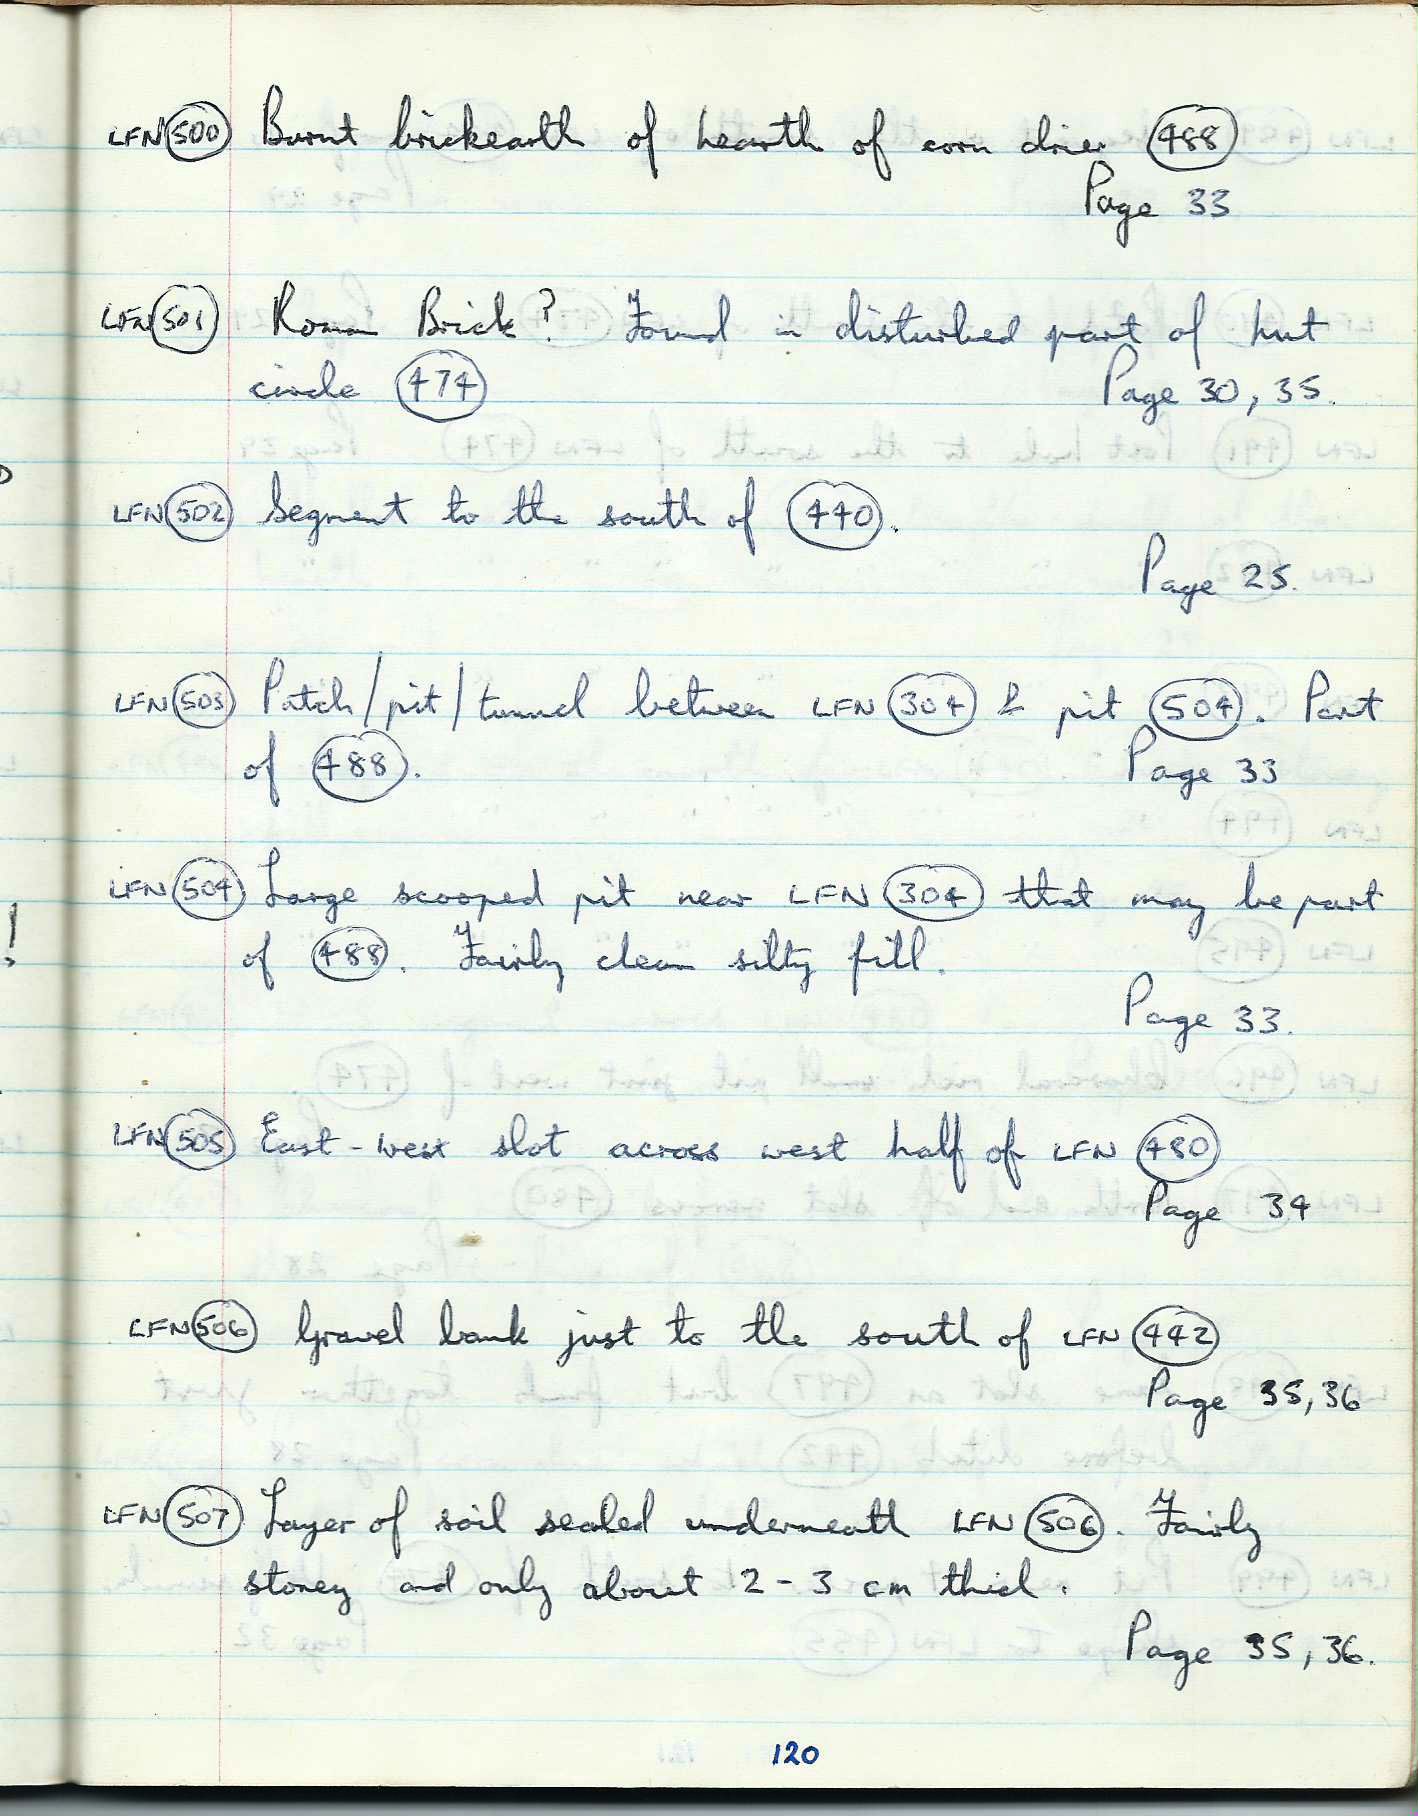 LFN 500 Burnt brickearth of hearth of corn drier 488
Page 33
LFN 501 Roman Brick? Found in disturbed part of hut
circle 474 Page 30, 35.
LFN 502 Segment to the south of 440.
Page 25.
LFN 503 Patch/pit/tunnel between LFN 304 & pit 504. Part
of 488. Page 33
LFN 504 Large scooped pit near LFN 304 that may be part
of 488. Fairly clean silty fill.
Page 33.
LFN 505 East-west slot across west half of LFN 480
Page 34
LFN 506 Gravel bank just to the south of LFN 442
Page 35, 36
LFN 507 Layer of soil sealed underneath LFN 506. Fairly
stoney and only about 2-3 cm thick.
Page 35, 36.
120